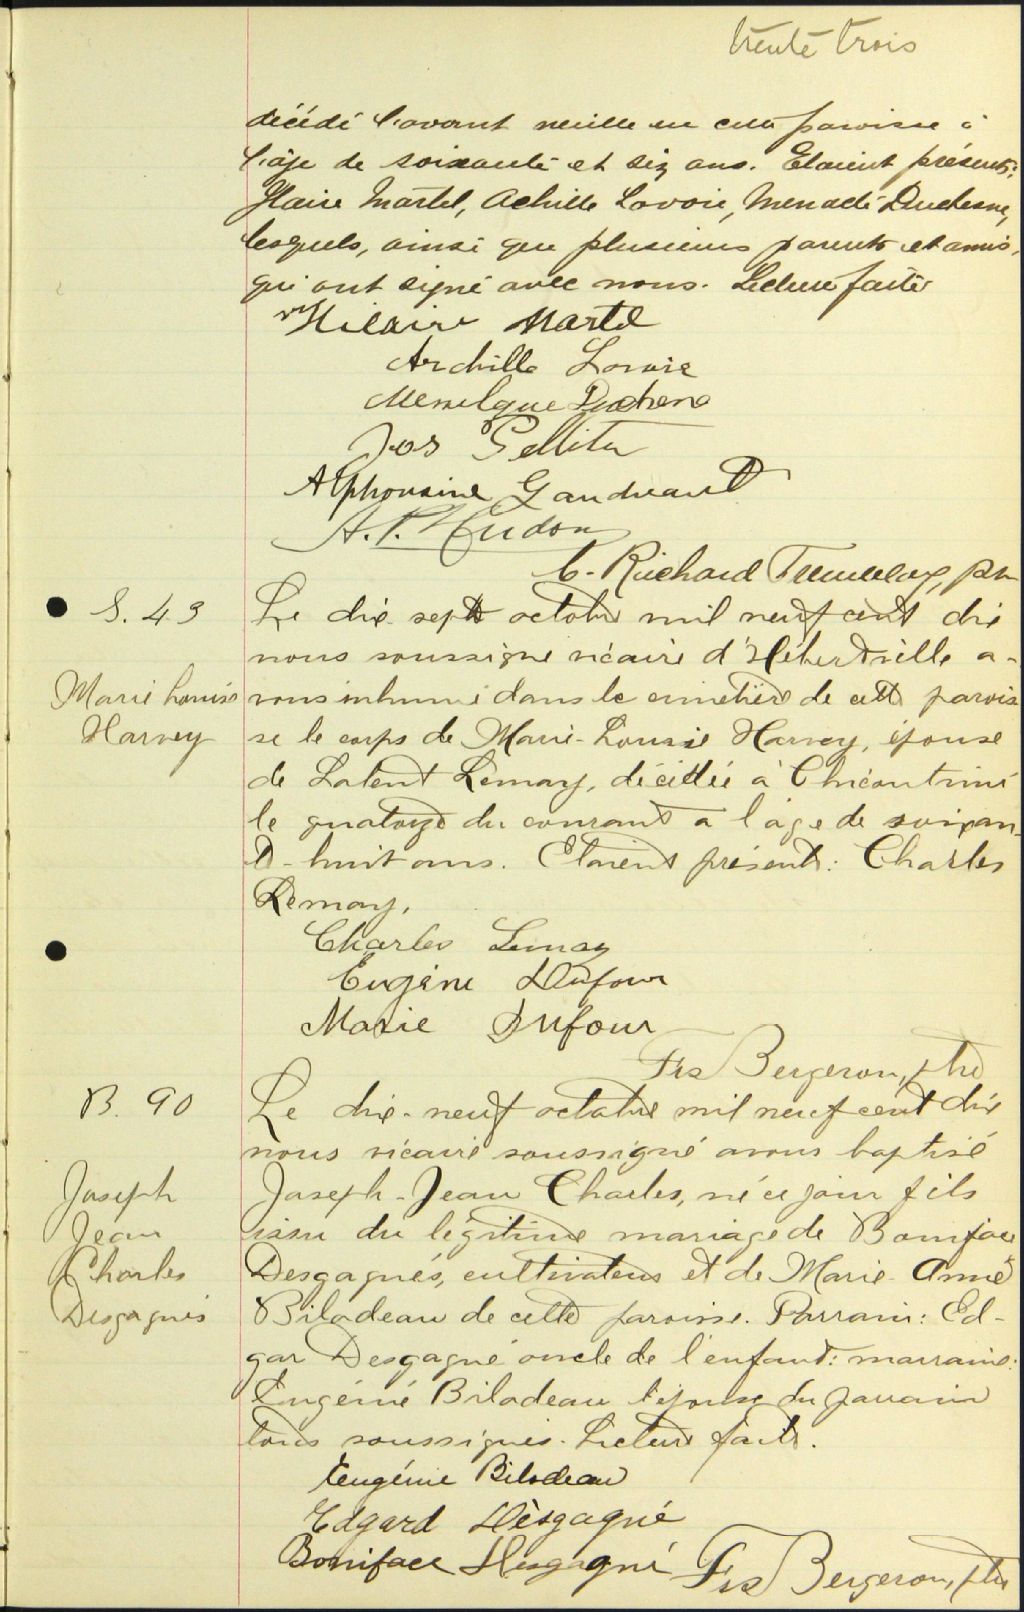 trente trois
décédé l'avant veille en cette paroisse à
l'âge de soixante et dix ans. Etaient présents:
Hilaire Martel, Achille Lavoie, Duchesne,
lesquels, ainsi que plusieurs parents et amis,
qui ont signé avec nous. Lecture faite
Hilaire Martel
Archille Lavoie
Duchene
Jos Pelletier
Alphonsine Gaudreault
A. P. Hudon
C. Richard Tremblay, ptre
S. 43
Marie Louise
Harvey
Le dix-sept octobre mil neuf cent dix
nous soussigné vicaire d'Hébertville a-
vons inhumé dans le cimetière de cette parois
se le corps de Marie-Louise Harvey, épouse
de Lemay, décédée à Chicoutimi
le quatorze du courant a l'âge de soixan-
te-huit ans. Etaient présents: Charles
Lemay.
Charles Lemay
Eugène Dufour
Marie Dufour
Frs Bergeron, ptre
B. 90
Joseph
Jean
Charles
Desgagnés
Le dix-neuf octobre mil neuf cent dix
nous vicaire soussigné avons baptisé
Joseph-Jean Charles, né ce jour fils
issu du légitime mariage de Boniface
Desgagnés, cultivateur et de Marie-Anne
Bilodeau de cette paroisse. Parrain: Ed-
gar Desgagné oncle de l'enfant: marraine:
Eugénie Bilodeau épouse du parrain
tous soussignés. Lecture faite.
Eugénie Bilodeau
Edgard Désgagné
Boniface Desgagné
Frs Bergeron, ptre